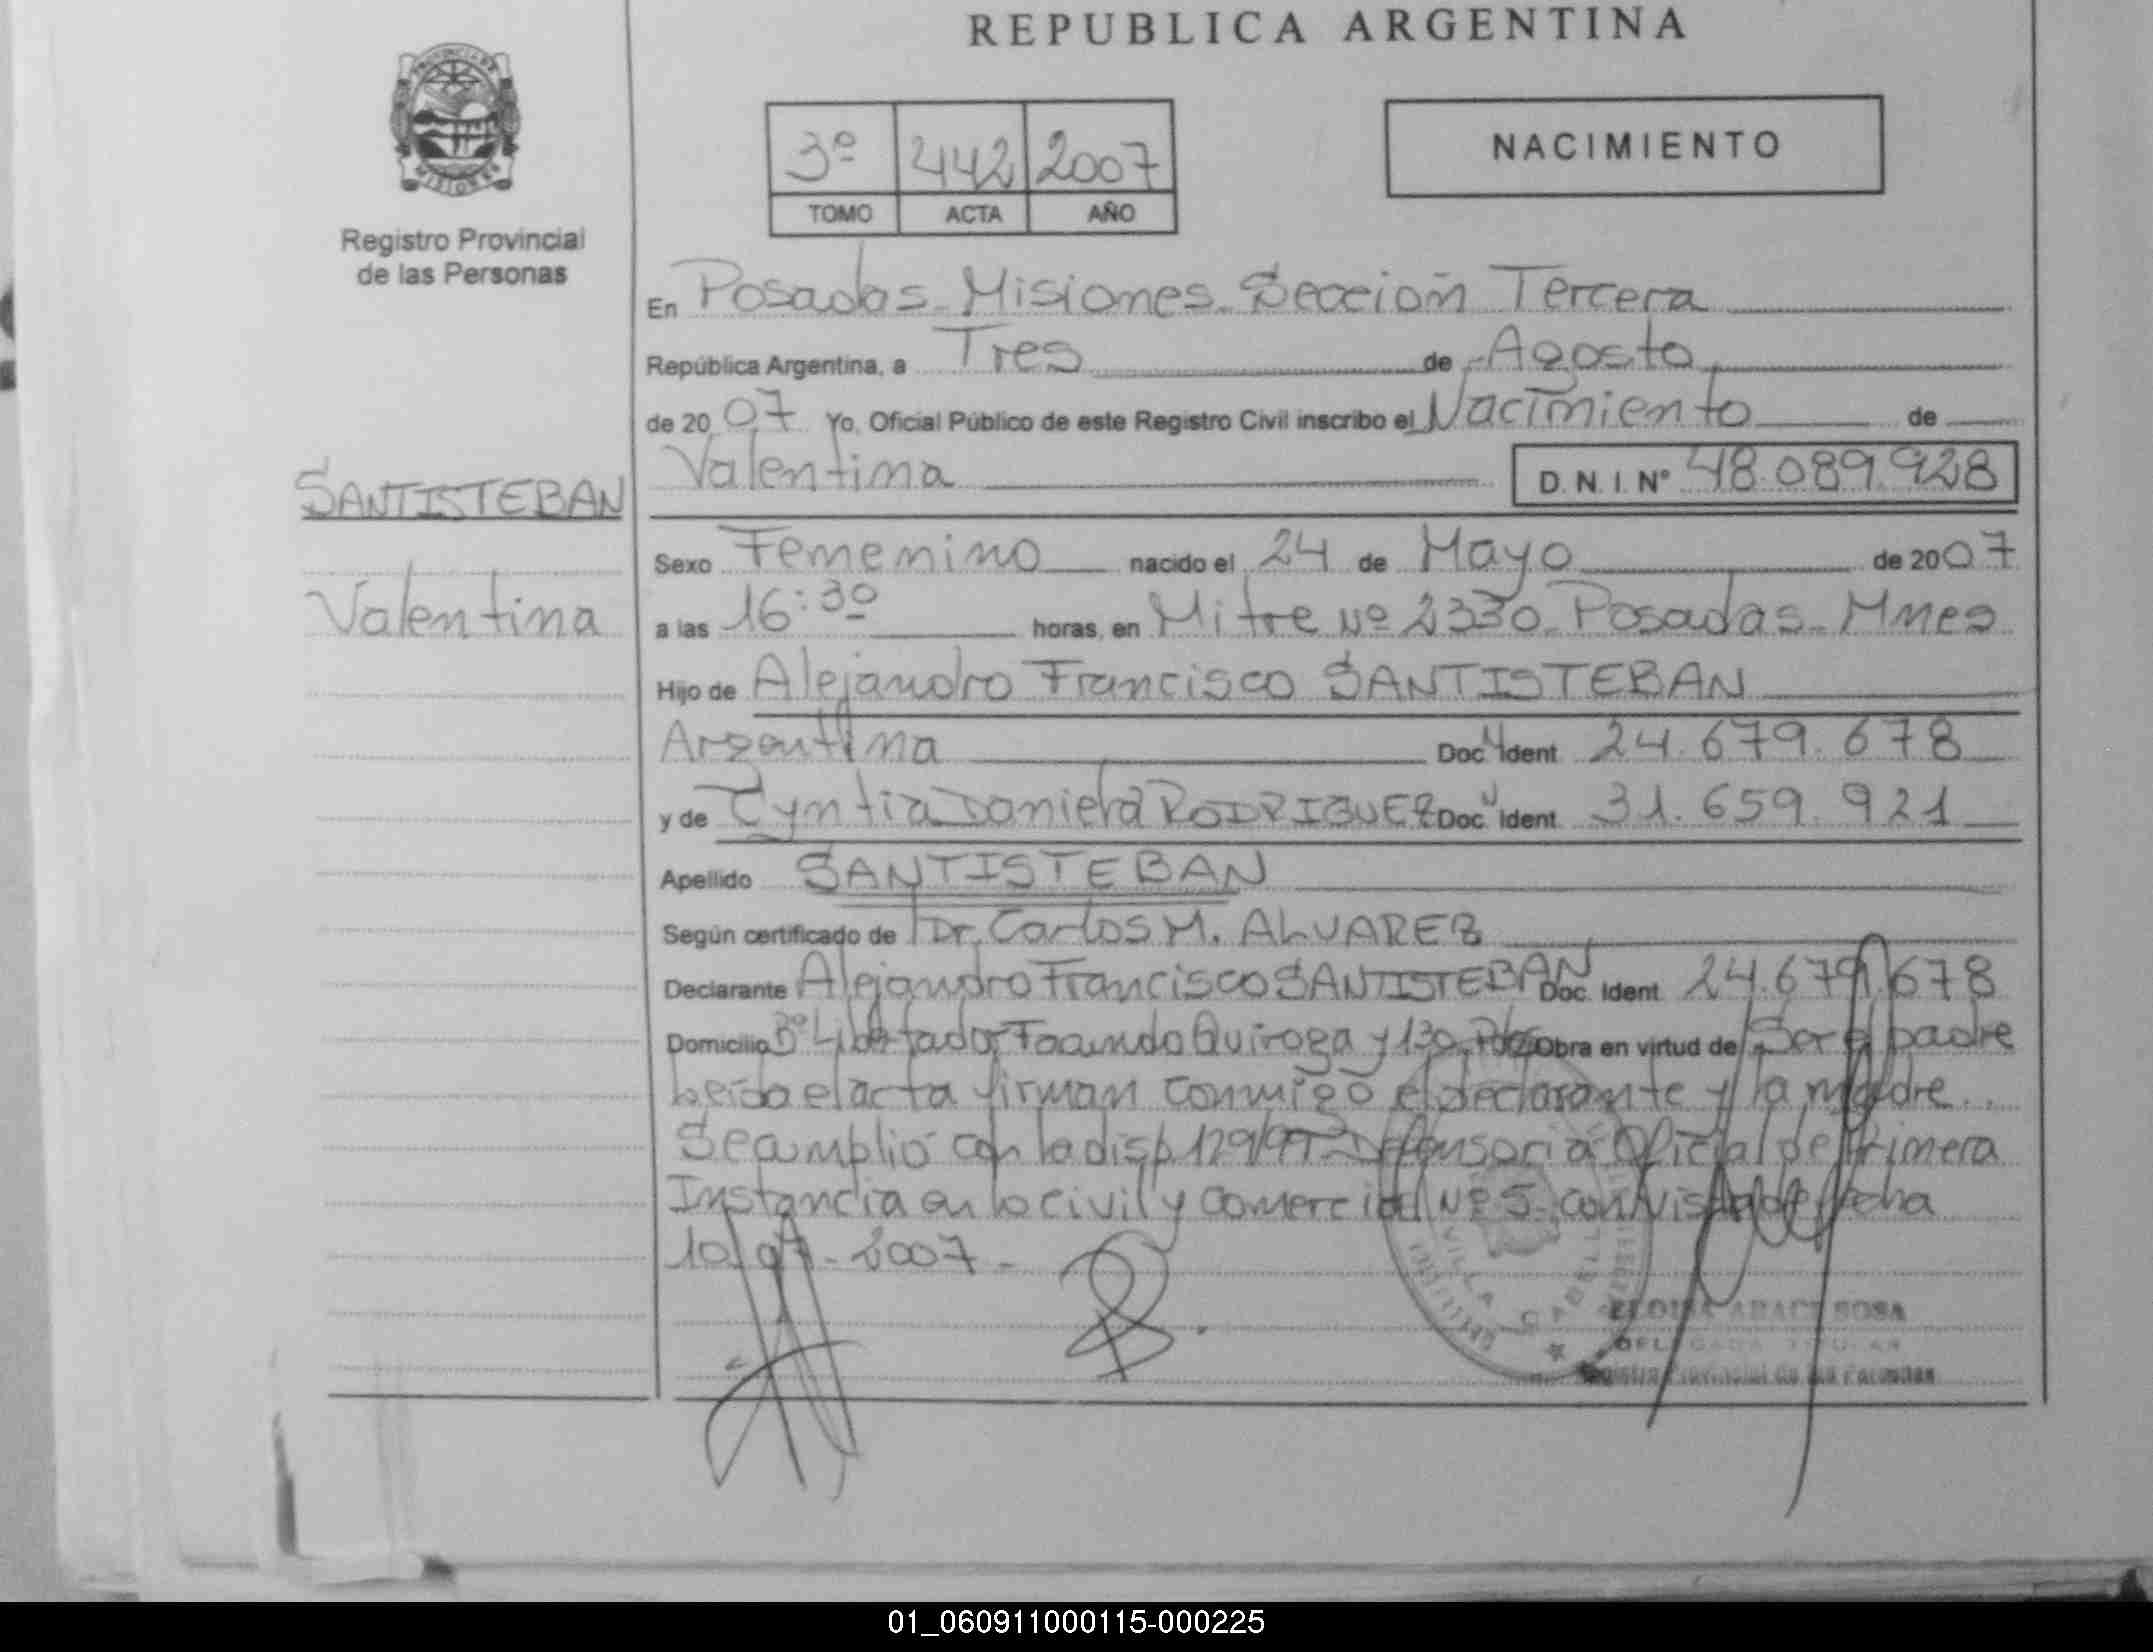 REPUBLICA ARGENTINA
PROVINCIA DE
MISIONES
Registro Provincial
de las Personas
3º 442 2007
TOMO ACTA AÑO
NACIMIENTO
En Posadas - Misiones - Sección Tercera
República Argentina, a Tres de Agosto
de 2007 Yo, Oficial Público de este Registro Civil inscribo el Nacimiento de
Valentina D.N.I. Nº 48.089.928
SANTISTEBAN
Valentina
Sexo Femenino nacido el 24 de Mayo de 2007
a las 16:30 horas, en Mitre Nº 2330 - Posadas - Mnes
Hijo de Alejandro Francisco SANTISTEBAN
Argentina Doc Ident 24.679.678
y de Cyntia Daniela RODRIGUEZ Doc Ident 31.659.921
Apellido SANTISTEBAN
Según certificado de Dr. Carlos M. ALVAREZ
Declarante Alejandro Francisco SANTISTEBAN Doc. Ident 24.679.678
Domicilio Facundo Quiroga y 130 Obra en virtud de Ser el padre
Leída el acta firman conmigo el declarante y la madre..
Se amplió con la disp 129/97 Defensoría Oficial de Primera
Instancia en lo civil y comercial Nº 5 con vista de fecha
10-07-2007-
VILLA CABELLO
SOSA
Registro Provincial de las Personas
01_060911000115-000225